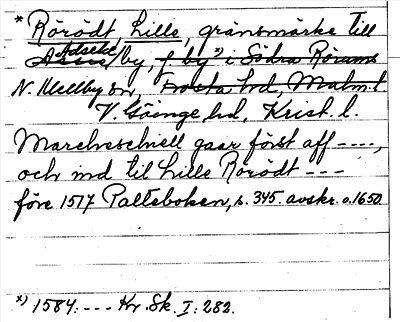 * Rörödt, Lille, gränsmärke till
Adseke
by, f by x) i Södra Rörums
N. Mellby sn, Frosta hd, Malm. l
V. Göinge hd, Krist. l.
Marcheschiell gaar först aff ----,
och ind til Lille Rörödt ---
före 1517 Palteboken, s. 345. avskr. o. 1650.
x) 1584: --- Kr. Sk. I: 282.